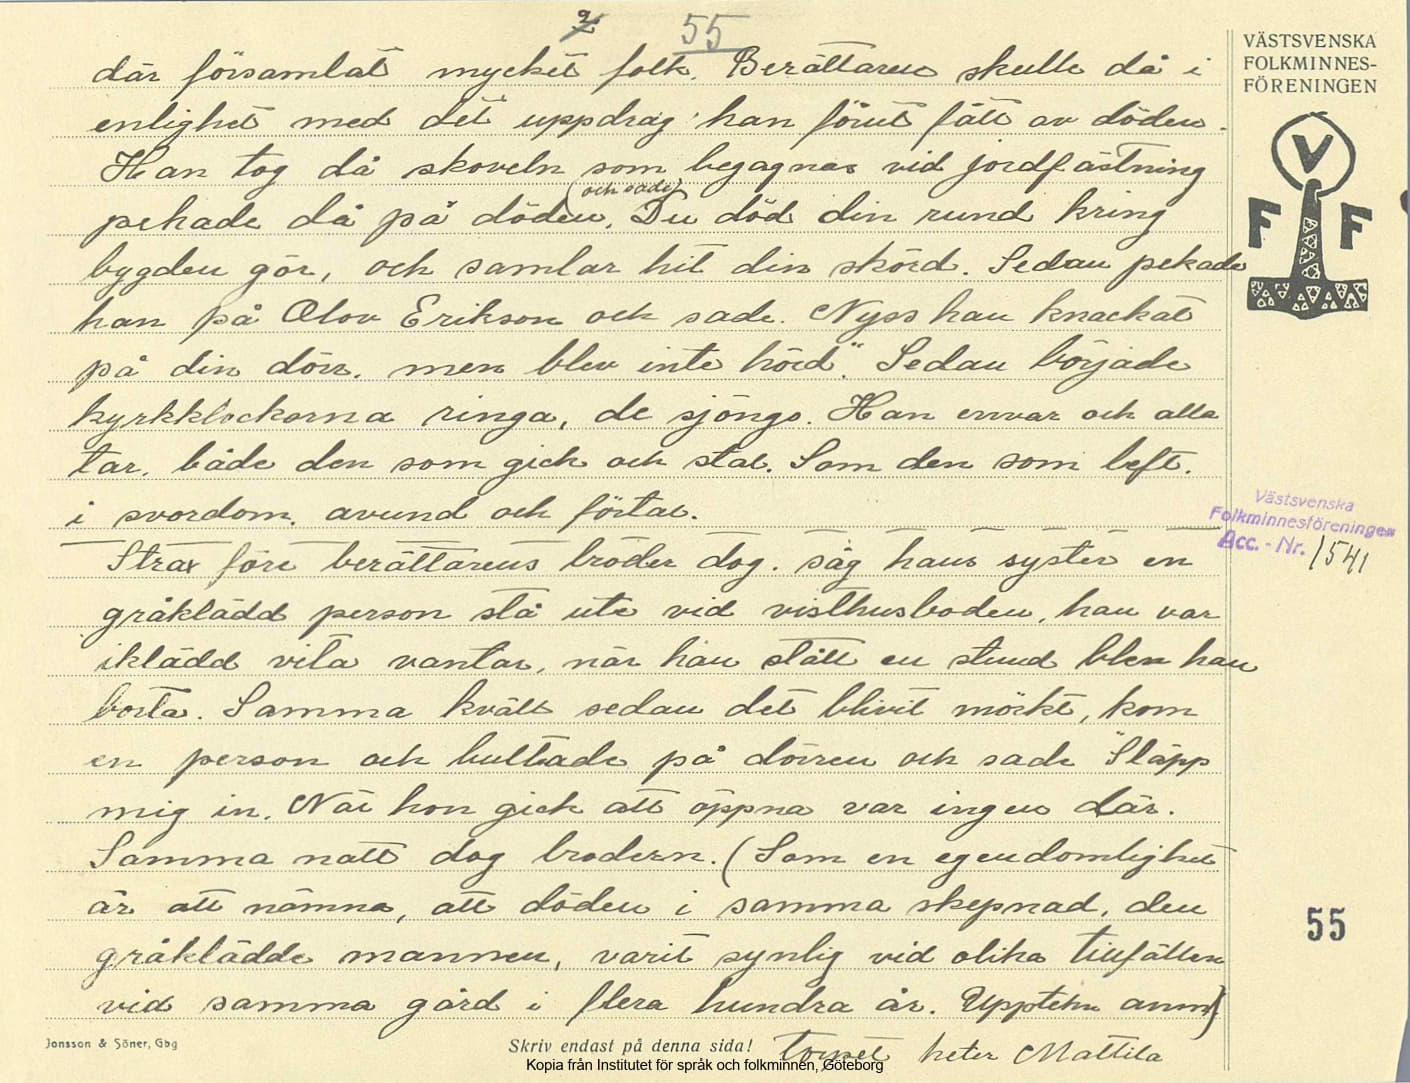 2
55
där församlat mycket folk. Berättaren skulle då i
enlighet med det uppdrag han förut fått av döden.
Han tog då skoveln som begagnas vid jordfästning
pekade då på döden, (och sade) Du död din rund kring
bygden gör, och samlar hit din skörd. Sedan pekade
han på Olov Erikson och sade. Nyss han knackat
på din dörr. men blev inte hörd." Sedan började
kyrkklockorna ringa, de sjöngo. Han envar och alla
tar. både den som gick och stal. Som den som left.
i svordom. avund och förtal.
Strax före berättarens broder dog. såg hans syster en
gråklädd person stå ute vid visthusboden, han var
iklädd vita vantar, när han stått en stund blev han
borta. Samma kväll sedan det blivit mörkt, kom
en person och bultade på dörren och sade "Släpp
mig in. När hon gick att öppna var ingen där.
Samma natt dog brodern. (Som en egendomlighet
är att nämna, att döden i samma skepnad, den
gråklädde mannen, varit synlig vid olika tillfällen
vid samma gård i flera hundra år. Uppteckn anm)
torpet heter Mattila
VÄSTSVENSKA
FOLKMINNES-
FÖRENINGEN
V
F F
Västsvenska
Folkminnesföreningen
Acc. - Nr. 1541
55
Jonsson & Söner, Gbg
Skriv endast på denna sida!
Kopia från Institutet för språk och folkminnen, Göteborg